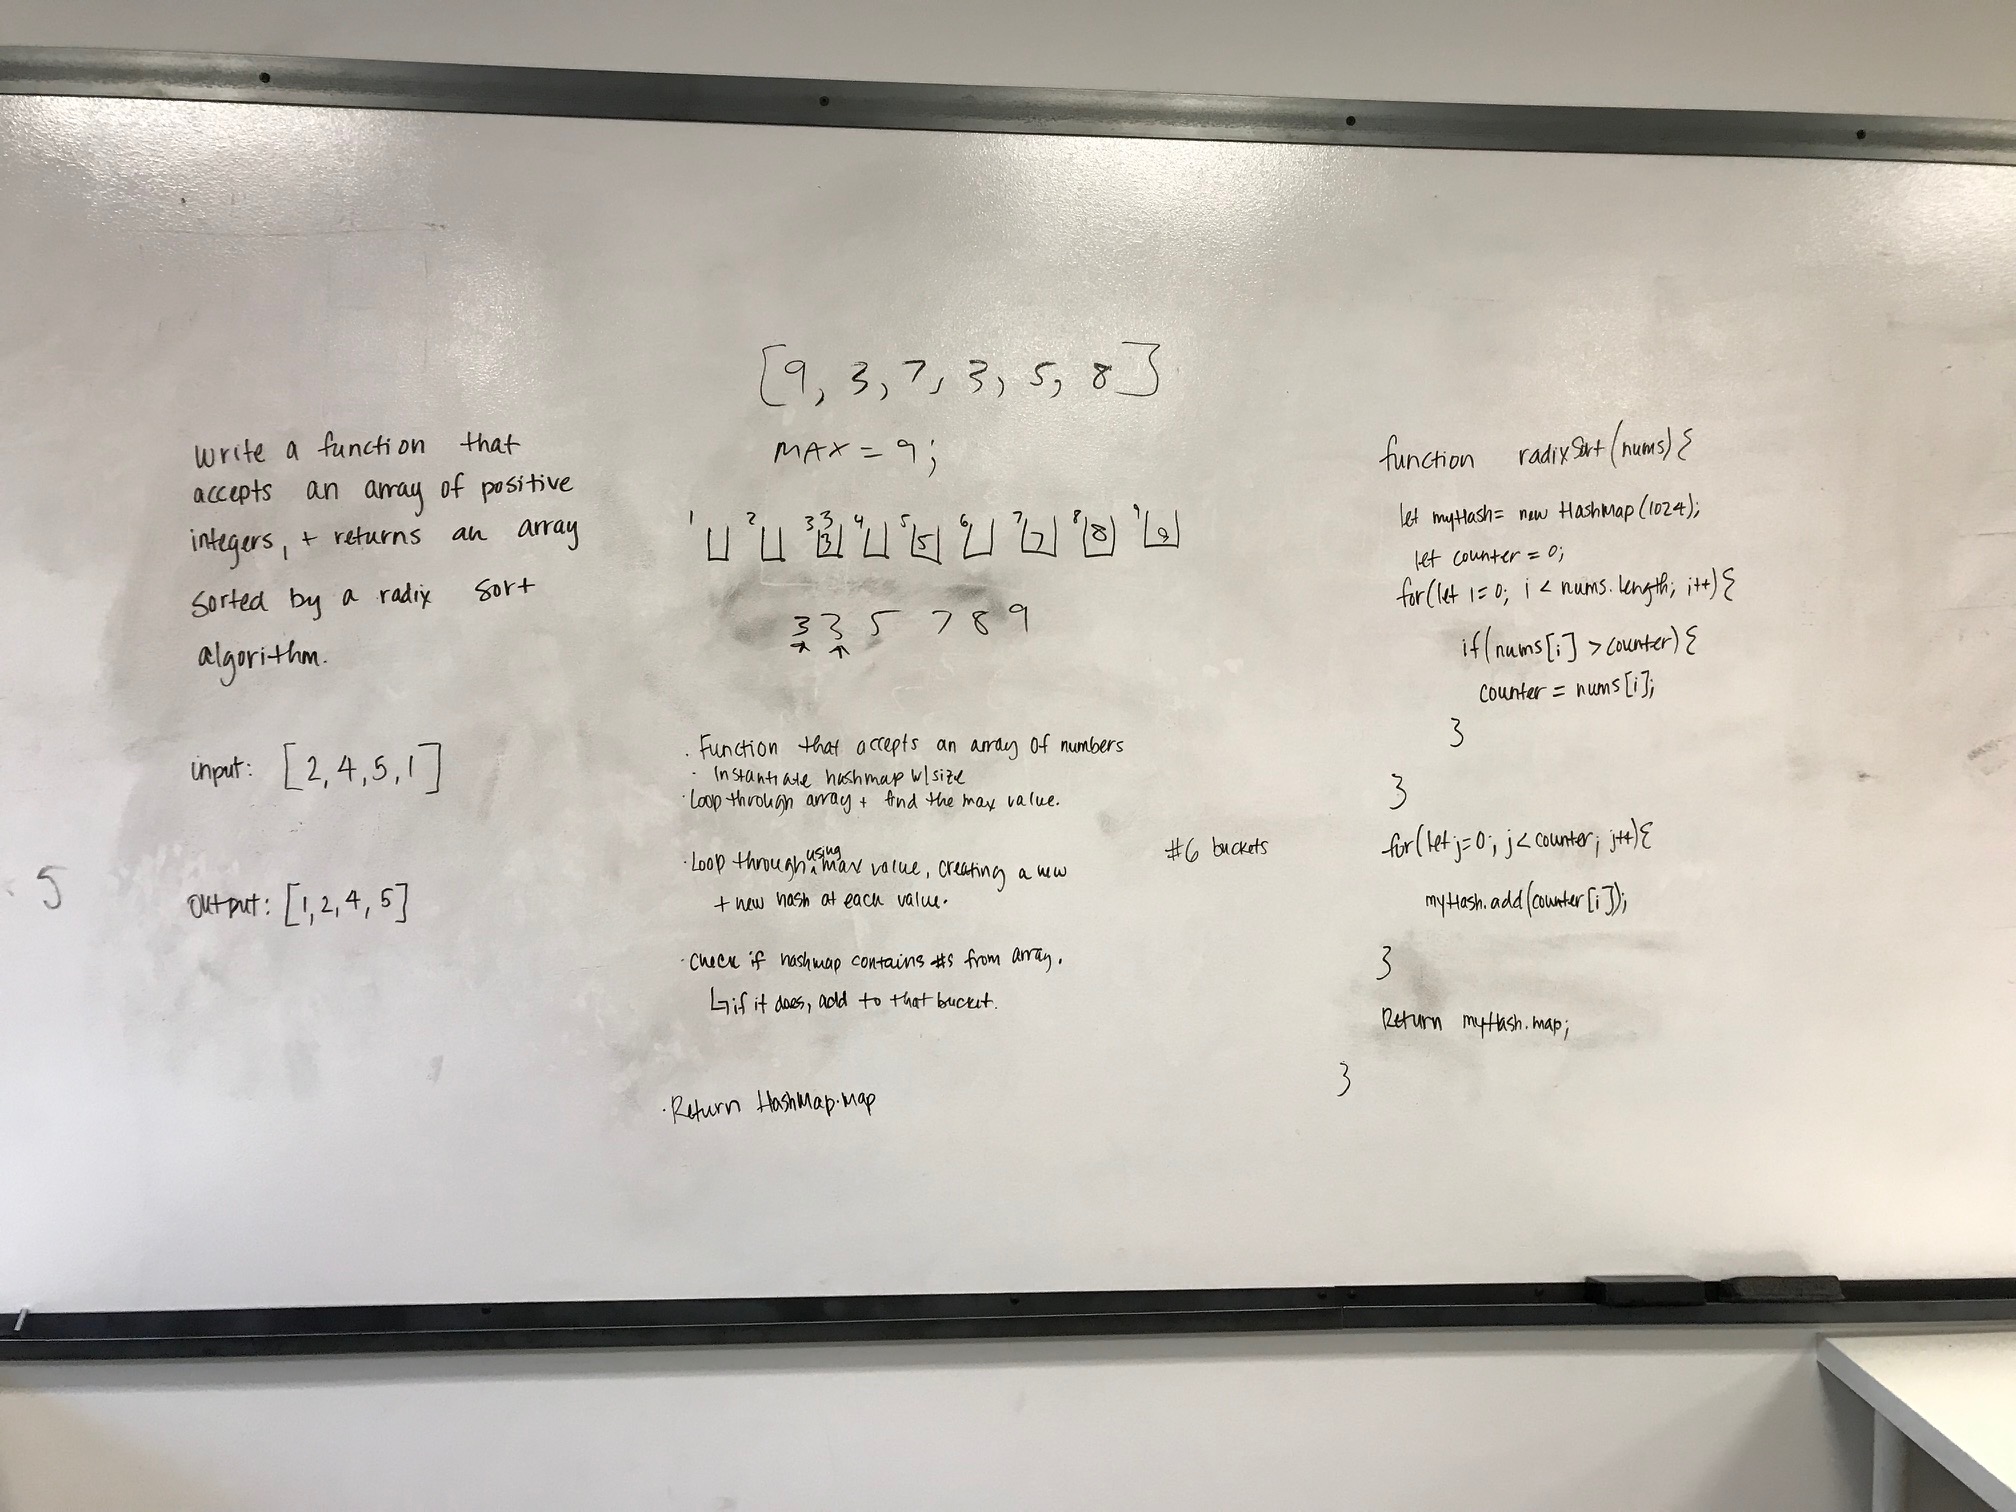 write a function that
accepts an array of positive
integers, + returns an array
sorted by a radix sort
algorithm.
input: [2, 4, 5, 1]
output: [1, 2, 4, 5]
5
[9, 3, 7, 3, 5, 8]
MAX = 9;
1 2 3 4 5 6 7 8 9
3
3 5 7 8 9
3 3 5 7 8 9
· Function that accepts an array of numbers
· Instantiate hashmap w/ size
· Loop through array + find the max value.
· Loop through using max value, creating a new
+ new hash at each value.
· Check if hashmap contains #s from array.
↳ if it does, add to that bucket.
· Return HashMap.map
#6 buckets
function radixSort(nums){
let myHash = new HashMap(1024);
let counter = 0;
for(let i=0; i < nums.length; i++){
if(nums[i] > counter){
counter = nums[i];
}
}
for(let j=0; j < counter; j++){
myHash.add(counter[i]);
}
Return myHash.map;
}